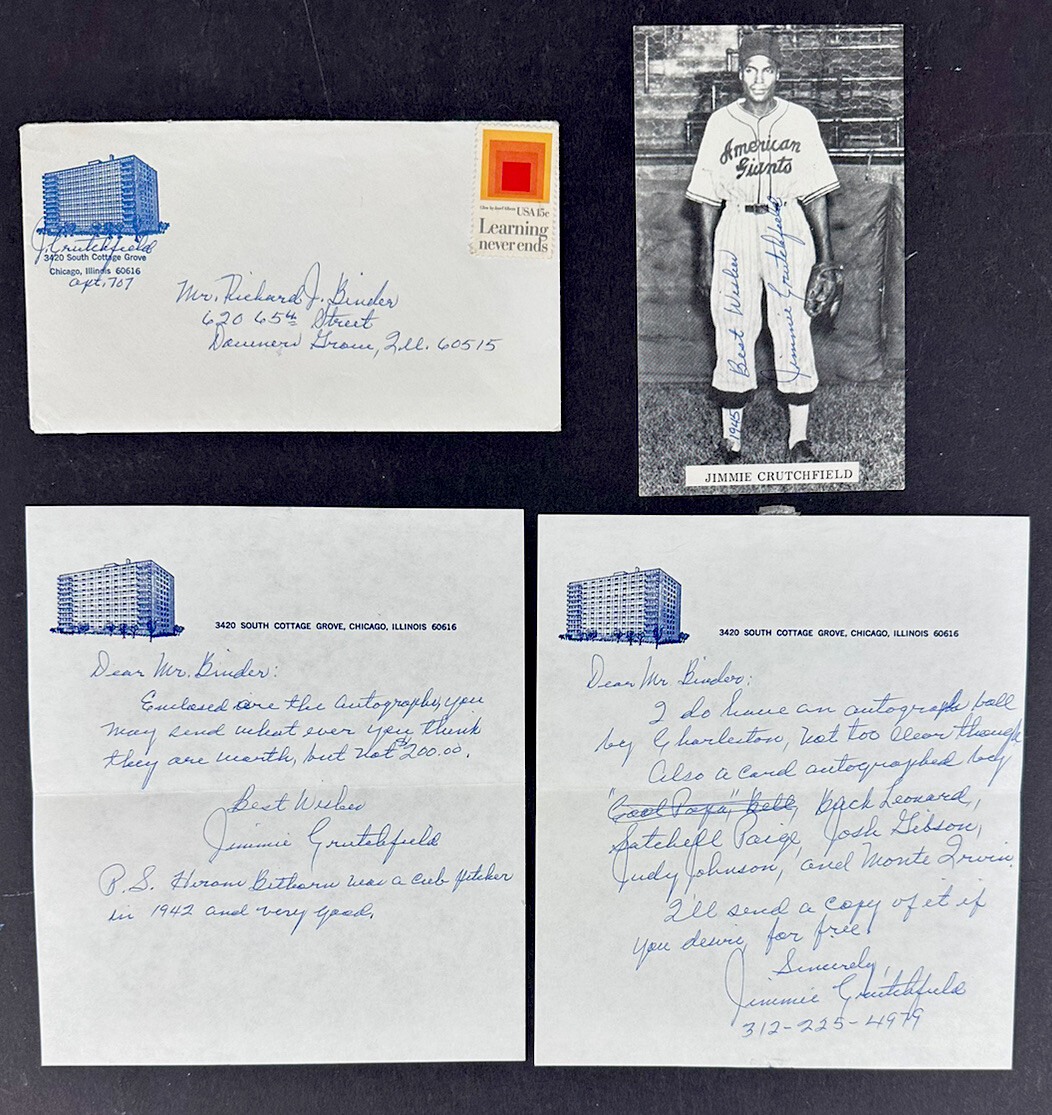 J. Crutchfield
3420 South Cottage Grove
Chicago, Illinois 60616
Apt. 707
USA 15c
Learning
never ends
Mr. Richard J. Binder
620 65th Street
Downers Grove, Ill. 60515
American
Giants
Best Wishes
Jimmie Crutchfield
1945
JIMMIE CRUTCHFIELD
3420 SOUTH COTTAGE GROVE, CHICAGO, ILLINOIS 60616
Dear Mr. Binder:
Enclosed are the autographs, you
may send what ever you think
they are worth, but not $200.00.
Best Wishes
Jimmie Crutchfield
P.S. Hiram Bithorn was a cub pitcher
in 1942 and very good.
3420 SOUTH COTTAGE GROVE, CHICAGO, ILLINOIS 60616
Dear Mr. Binder:
I do have an autograph ball
by Charleston, not too clear though
Also a card autographed by
"Cool Papa" Bell, Buck Leonard,
Satchell Paige, Josh Gibson,
Judy Johnson, and Monte Irvin.
I'll send a copy of it if
you desire, for free.
Sincerely,
Jimmie Crutchfield
312-225-4979